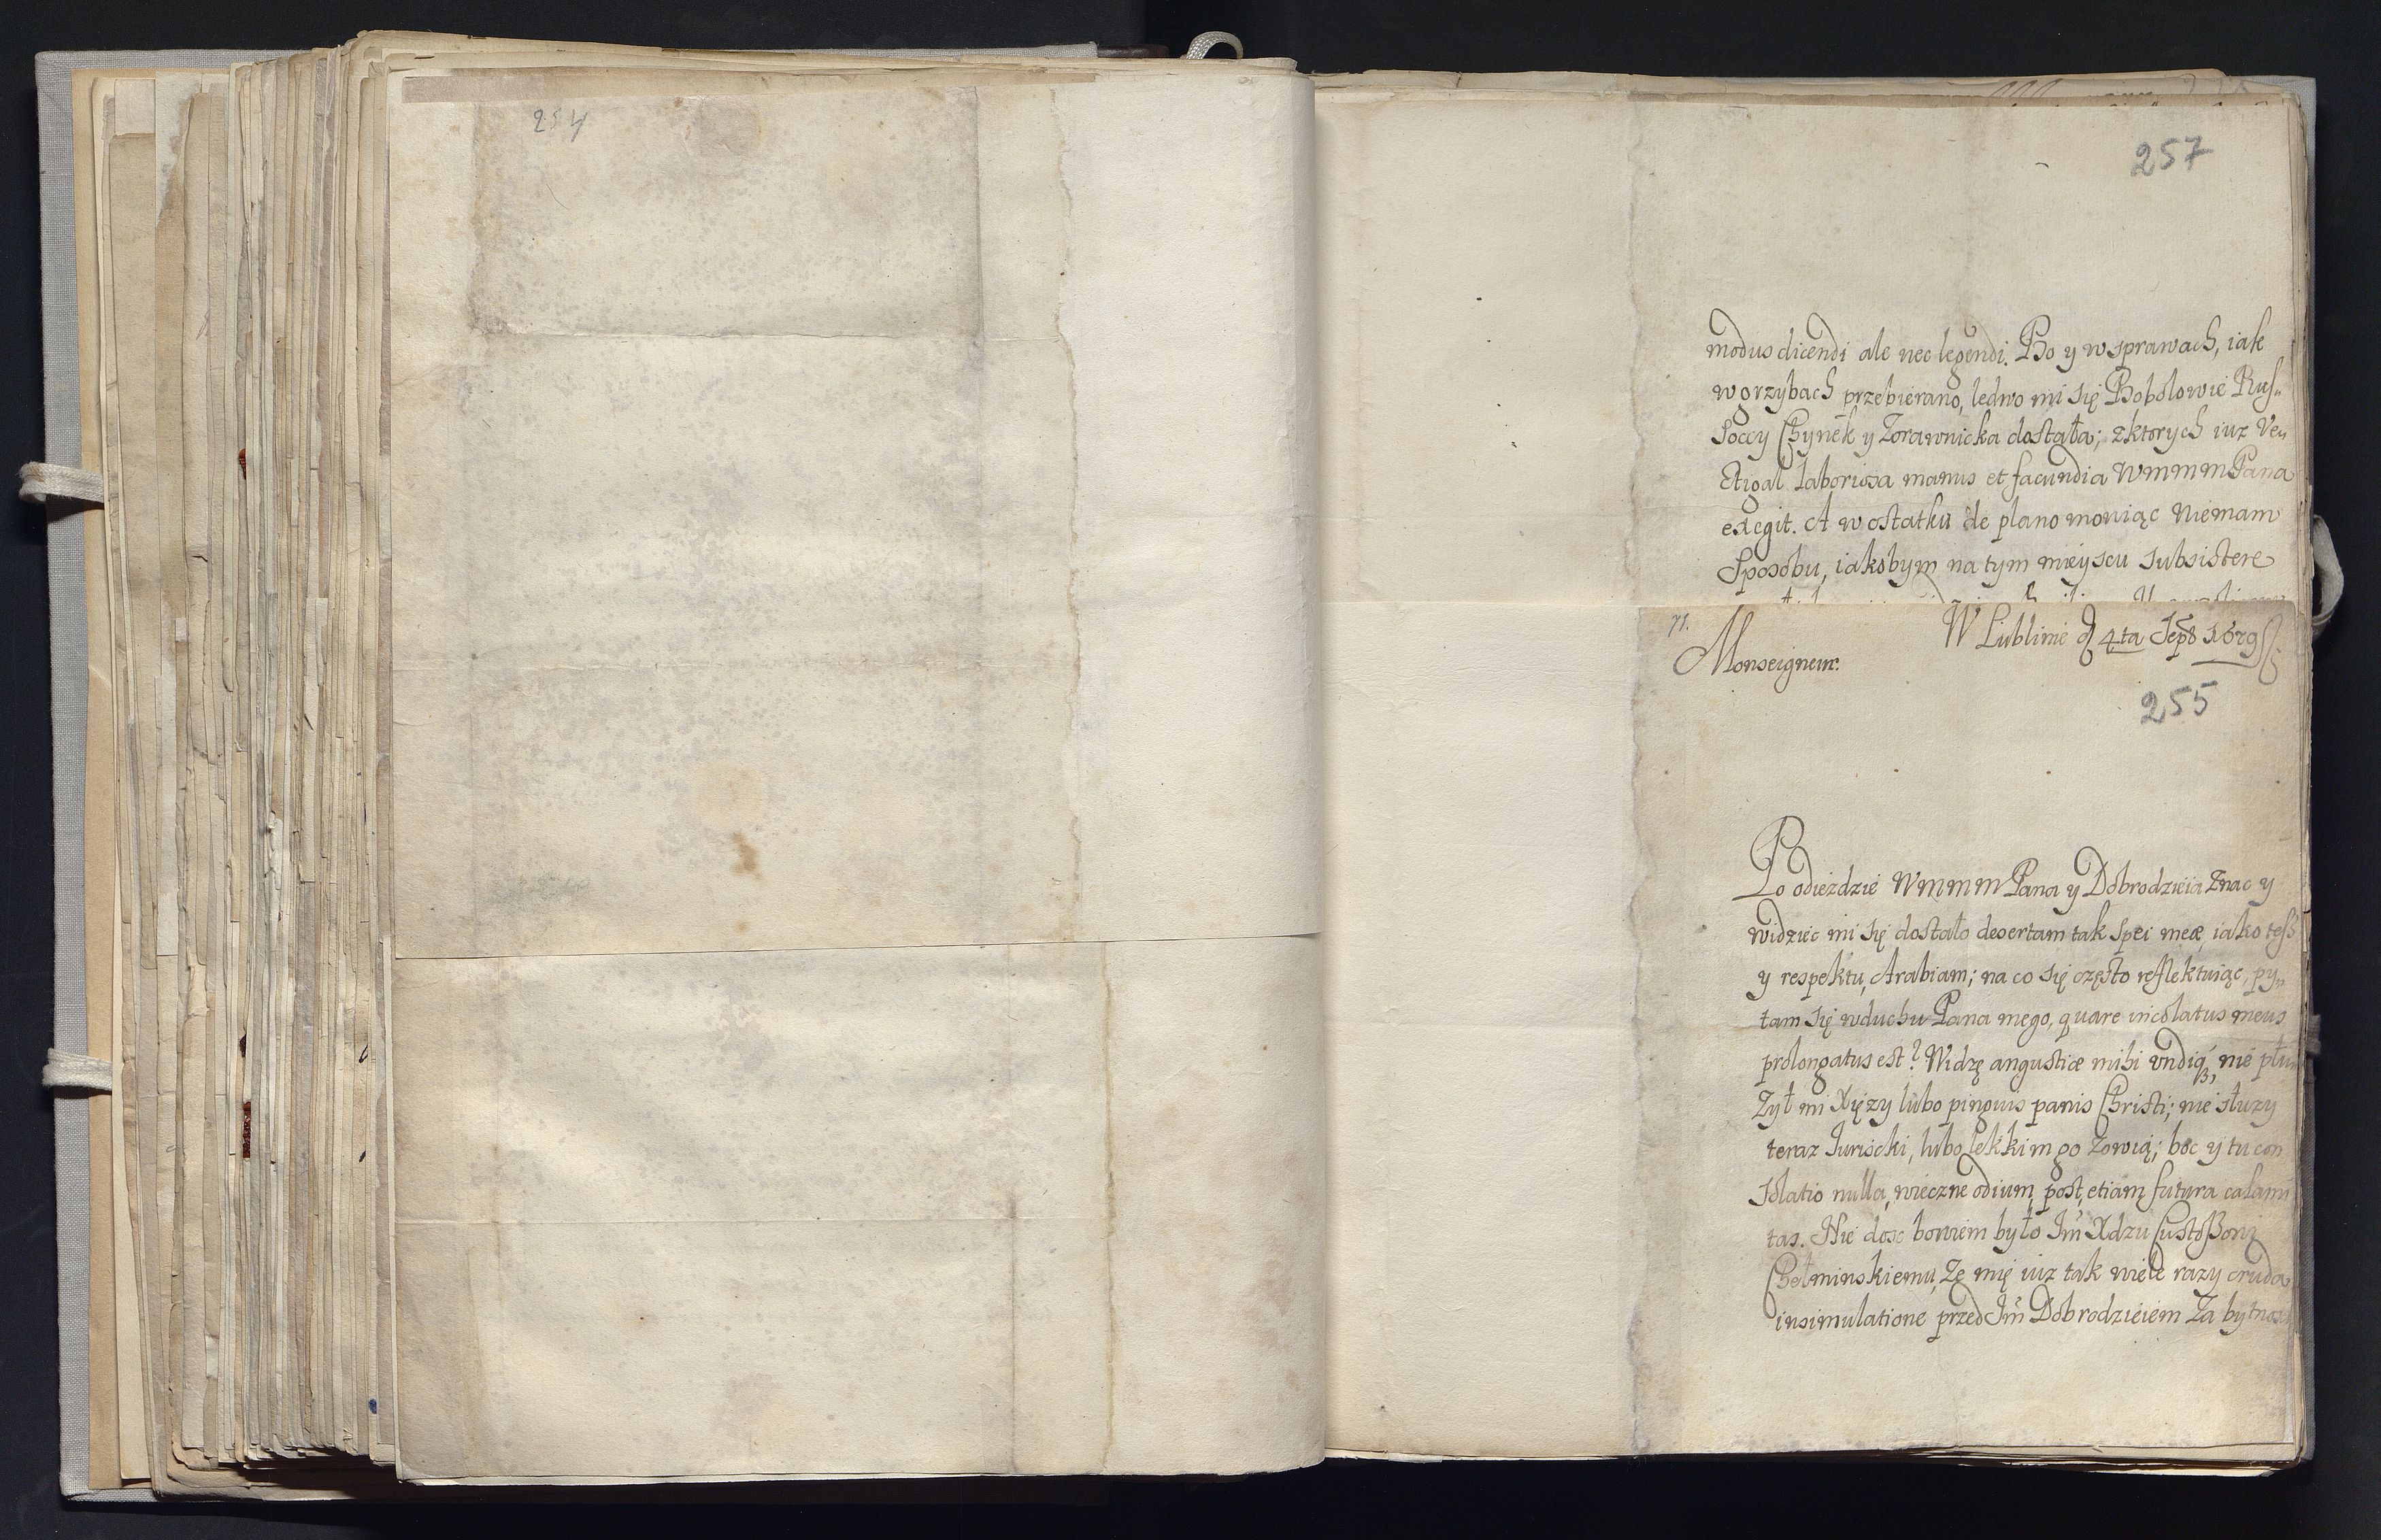 254
257
modus dicendi ale nec legendi. Bo y w sprawach, iak
w grzybach przebierano, ledwo mi się Bobolowie Rus„
soccy Chynek y Zorawnicka dostała; z ktorych iuz Ve„
ctigal laboriosa manus et facundia WmmmPana
exegit. A w ostatku de plano mowiąc Niemam
Sposobu, iakobym na tym mieyscu subsistere
71.
W Lublinie d 4ta Sepb 1679
Monseigneur.
255
Po odieździe WmmmPana y Dobrodzieia Znac y
widziec mi się dostało desertam tak Spei meæ, iako tesz
y respektu, Arabiam; na co się często reflektuiąc, py„
tam się w duchu Pana mego, quare incolatus meus
prolongatus est? Widzę angustiæ mihi undiq; nie płu
Zył mi Xięzy lubo pinguis panis Christi; nie słuzy
teraz Juriscki, lubo lekkim go Zowią; boc y tu con
solatio nulla, wieczne odium, post, etiam futura calami
tas. Nie dosc bowiem było Jm Xdzu Custoszowi
Chełminskiemu, Ze mię iuz tak wiele razy cruda
insimulatione przed Jm Dobrodzieiem Za bytnosc